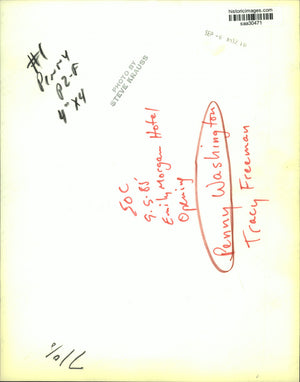 historicimages.com
saa30471
SEP
#1
Penny
P2-F
4" X4
PHOTO BY
STEVE KRAUSS
SOC
9.5.85
Emily Morgan Hotel
Opening
Penny Washington
Tracy Freeman